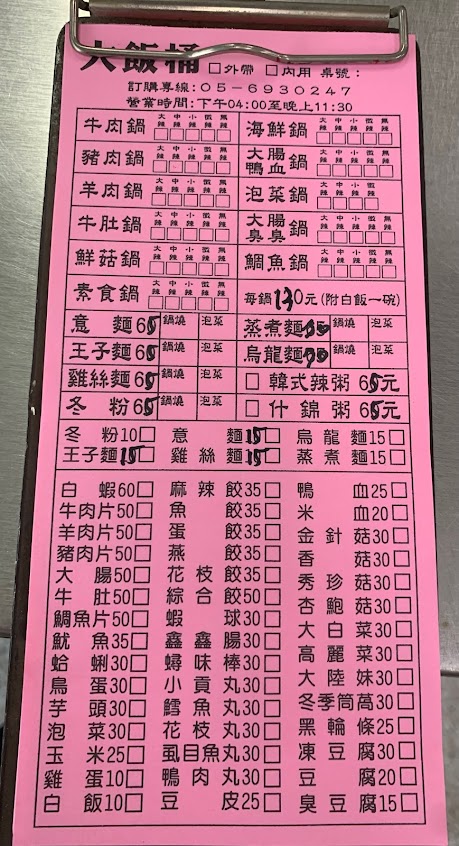 大飯桶 □外帶 □內用 桌號：
訂購專線：05-6930247
營業時間：下午04:00至晚上11:30
牛肉鍋 大辣 中辣 小辣 微辣 無辣 海鮮鍋 大辣 中辣 小辣 微辣 無辣
豬肉鍋 大辣 中辣 小辣 微辣 無辣 大腸鴨血鍋 大辣 中辣 小辣 微辣 無辣
羊肉鍋 大辣 中辣 小辣 微辣 無辣 泡菜鍋 大辣 中辣 小辣 微辣
牛肚鍋 大辣 中辣 小辣 微辣 無辣 大腸臭臭鍋 大辣 中辣 小辣 微辣 無辣
鮮菇鍋 大辣 中辣 小辣 微辣 無辣 鯛魚鍋 大辣 中辣 小辣 微辣 無辣
素食鍋 大辣 中辣 小辣 微辣 無辣 每鍋130元(附白飯一碗)
意麵65 鍋燒 泡菜 蒸煮麵 鍋燒 泡菜
王子麵65 鍋燒 泡菜 烏龍麵 鍋燒 泡菜
雞絲麵65 鍋燒 泡菜 □ 韓式辣粥 65元
冬粉65 鍋燒 泡菜 □ 什錦粥 65元
冬粉10□ 意麵15□ 烏龍麵15□
王子麵15□ 雞絲麵15□ 蒸煮麵15□
白蝦60□ 麻辣餃35□ 鴨血25□
牛肉片50□ 魚餃35□ 米血20□
羊肉片50□ 蛋餃35□ 金針菇30□
豬肉片50□ 燕餃35□ 香菇30□
大腸50□ 花枝餃35□ 秀珍菇30□
牛肚50□ 綜合餃50□ 杏鮑菇30□
鯛魚片50□ 蝦球30□ 大白菜30□
魷魚35□ 鑫鑫腸30□ 高麗菜30□
蛤蜊30□ 蟳味棒30□ 大陸妹30□
鳥蛋30□ 小貢丸30□ 冬季茼萵30□
芋頭30□ 鱈魚丸30□ 黑輪條25□
泡菜30□ 花枝丸30□ 凍豆腐30□
玉米25□ 虱目魚丸30□ 豆腐20□
雞蛋10□ 鴨肉丸30□ 臭豆腐15□
白飯10□ 豆皮25□